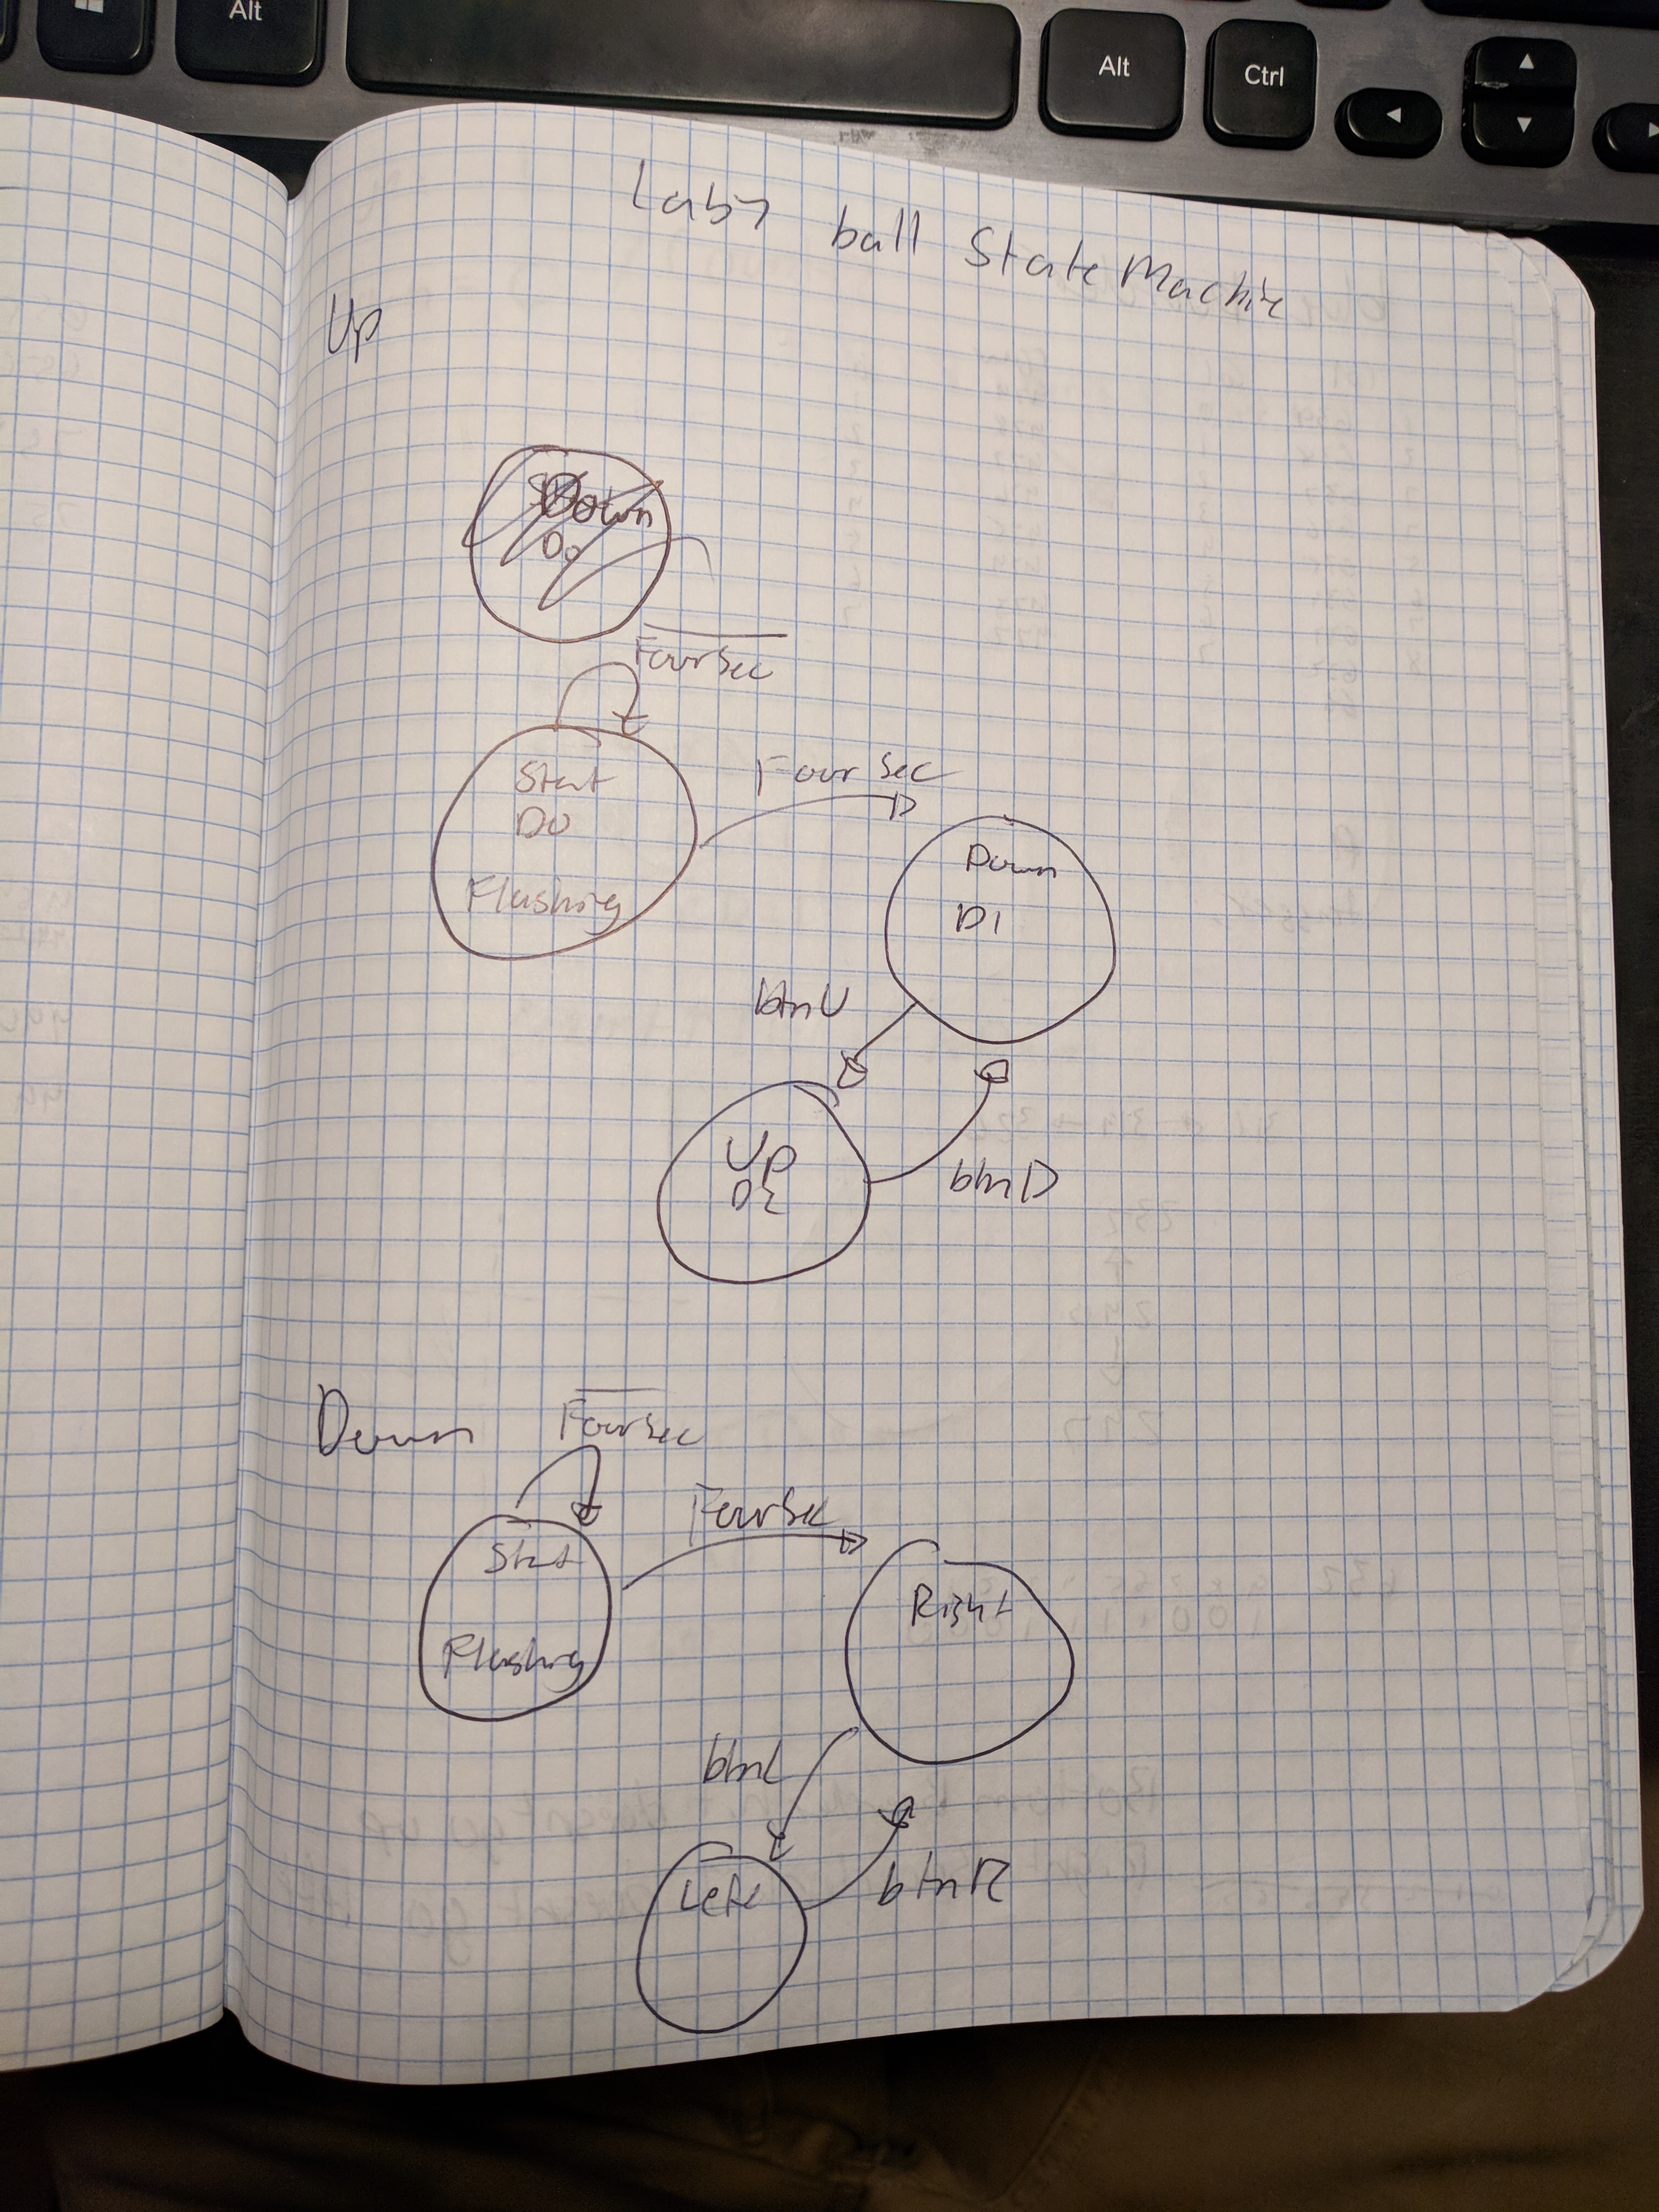 Alt
Alt
Ctrl
Lab7 ball State Machine
Up
Down
D0
FourSec
Start
D0
Flashing
Four Sec
Down
D1
btnU
Up
D2
btnD
Down
FourSec
Start
Flashing
FourSec
Right
btnL
Left
btnR